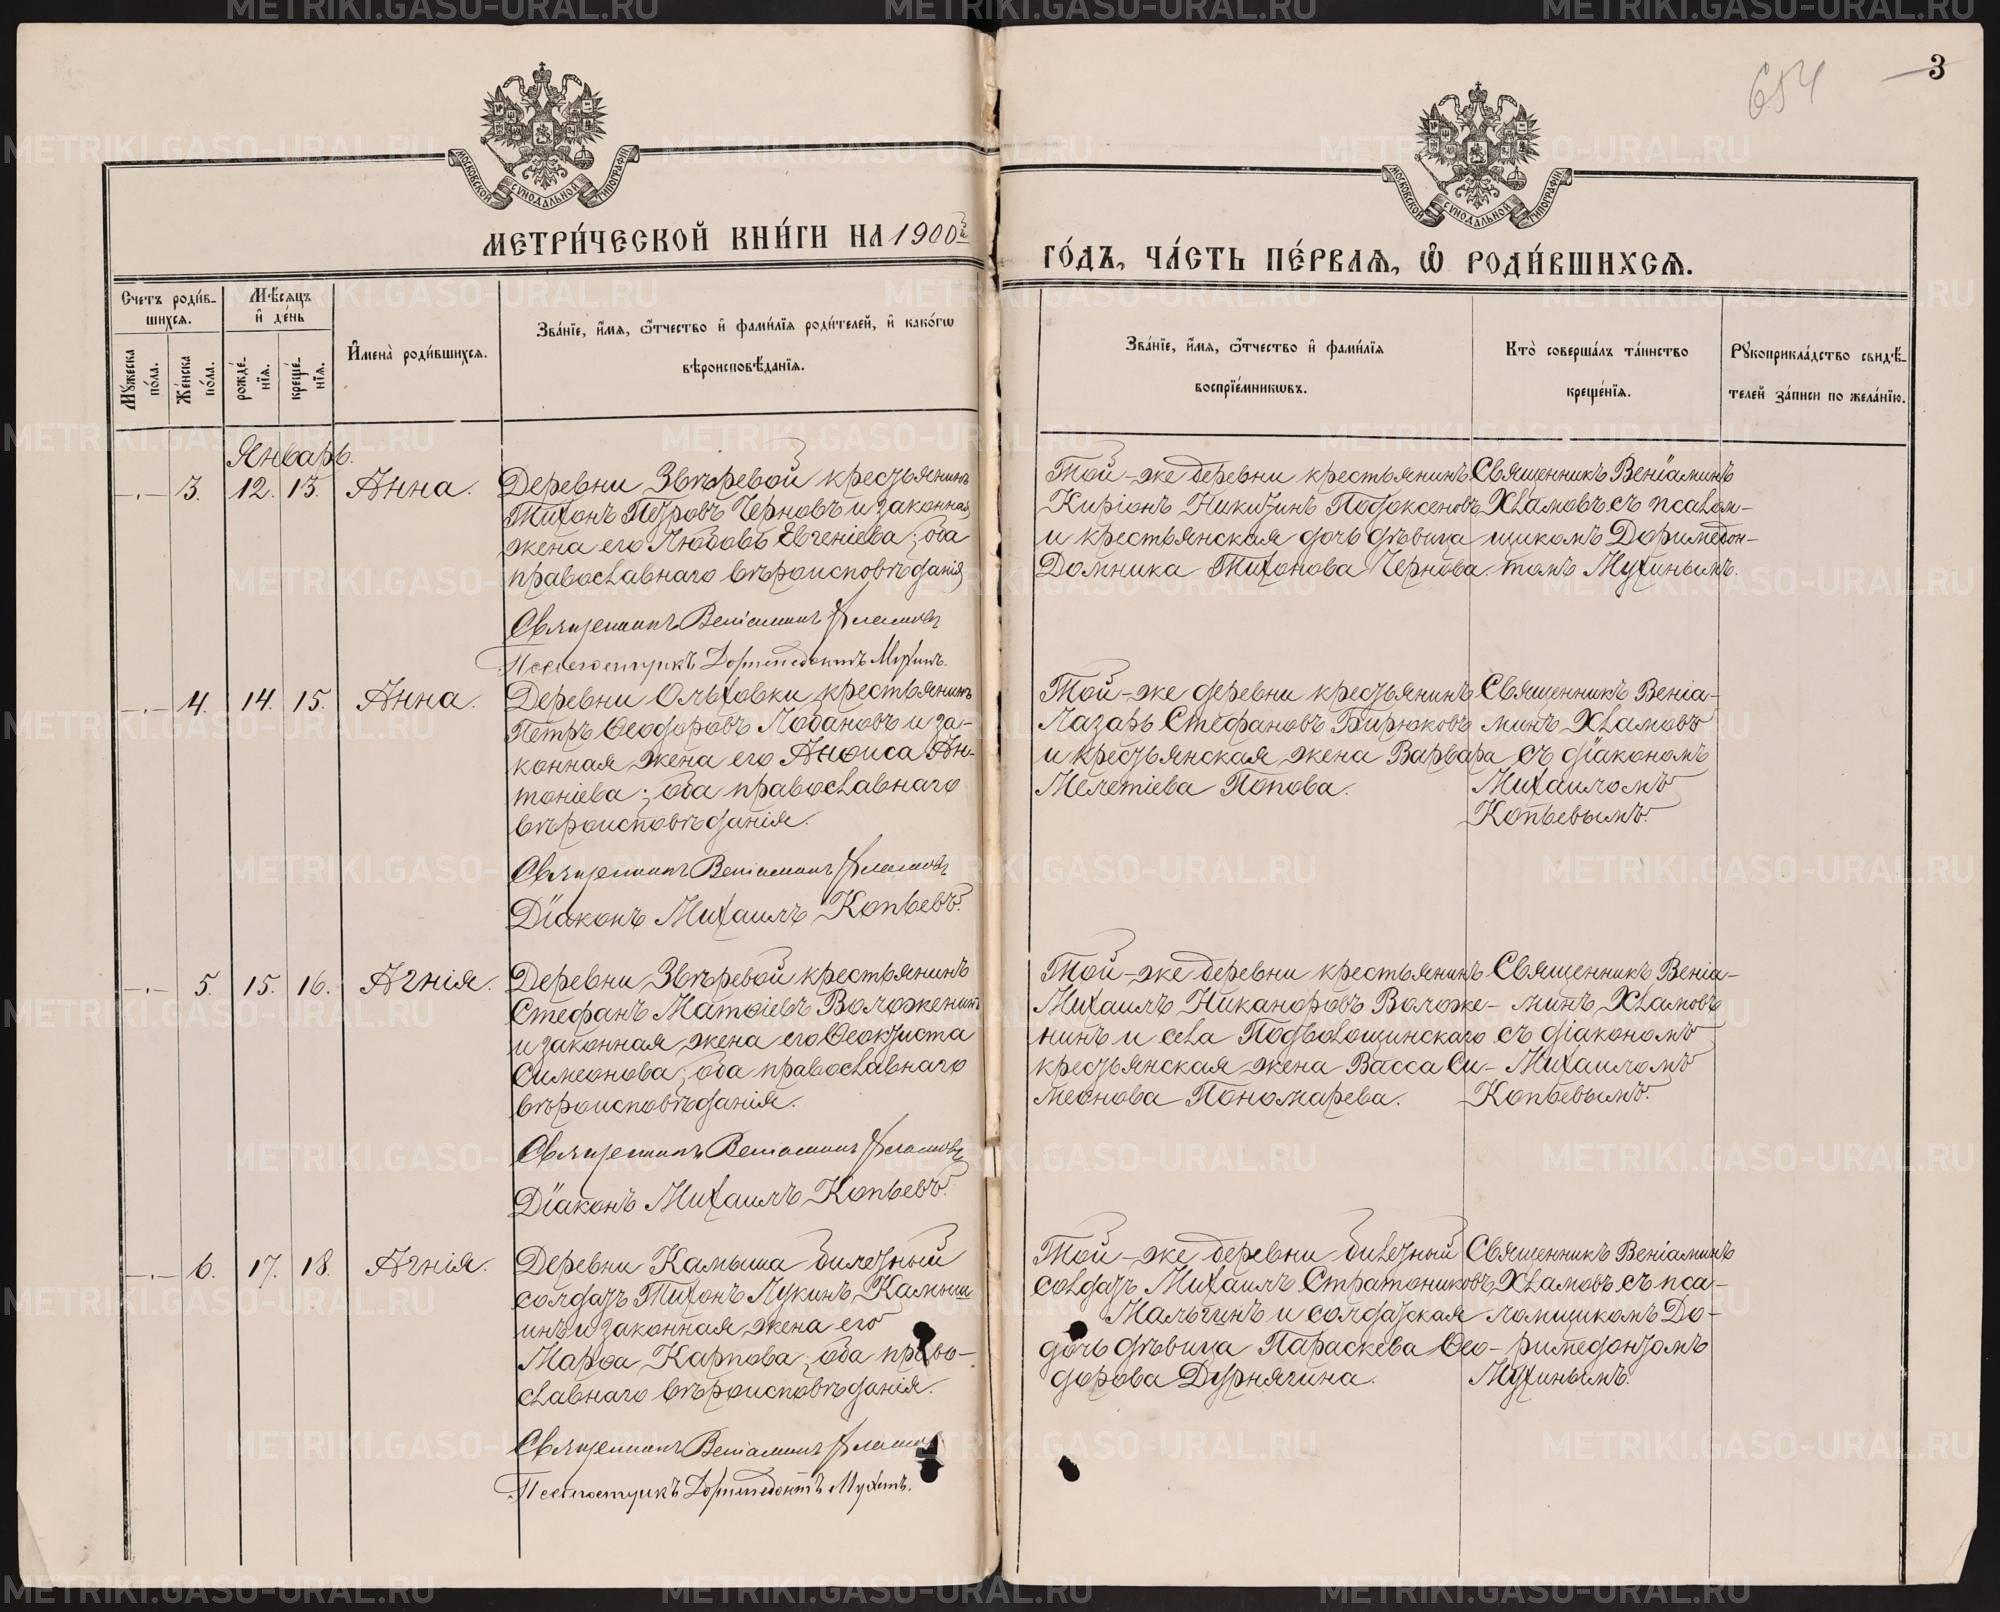 654
3
МОСКОВСКОЙ СѴНОДАЛЬНОЙ ТИПОГРАФІИ
МОСКОВСКОЙ СѴНОДАЛЬНОЙ ТИПОГРАФІИ
МЕТРИ́ЧЕСКОЙ КНИ́ГИ НА 1900й
ГО́ДЪ, ЧА́СТЬ ПЕ́РВАЯ, Ѽ РОДИ́ВШИХСЯ.
Счетъ роди́в-
шихся.
Мѣсяцъ
и де́нь
Мꙋжеска по́ла.
Же́нска по́ла.
рожде́-
нїя.
креще́-
нїя.
И́мена̀ роди́вшихся.
Зва́нїе, и́мя, ѻ҆́тчество и҆ фами́лїя роди́телей, и҆ како́гѡ
вѣроисповѣ́данїя.
Зва́нїе, и́мя, ѻ҆́тчество и҆ фами́лїя
воспрїе́мникѡвъ.
Кто̀ соверша́лъ та́инство
креще́нїя.
Рꙋкоприкла́дство свидѣ́-
телей за́писи по жела́нїю.
Январь.
3. 12. 13. Анна.
Деревни Звѣревой крестьянинъ
Тихонъ Петровъ Черновъ и законная
жена его Любовь Евгеніева; оба
православнаго вѣроисповѣданія
Священникъ Веніаминъ Хламовъ
Псаломщикъ Доримедонтъ Мухинъ.
Той-же деревни крестьянинъ
Киріонъ Никитинъ Подоксеновъ
и крестьянская дочь дѣвица
Домника Тихонова Чернова.
Священникъ Веніаминъ
Хламовъ съ псалом-
щикомъ Доримедон-
томъ Мухинымъ.
4. 14. 15. Анна.
Деревни Ольховки крестьянинъ
Петръ Ѳеодоровъ Лобановъ и за-
конная жена его Анѳиса Ан-
тоніева; оба православнаго
вѣроисповѣданія.
Священникъ Веніаминъ Хламовъ
Діаконъ Михаилъ Копьевъ.
Той-же деревни крестьянинъ
Лазарь Стефановъ Бирюковъ
и крестьянская жена Варвара
Мелетіева Попова.
Священникъ Веніа-
минъ Хламовъ
съ діакономъ
Михаиломъ
Копьевымъ.
5. 15. 16. Агнія.
Деревни Звѣревой крестьянинъ
Стефанъ Матѳіевъ Воложенинъ
и законная жена его Ѳеоктиста
Симеонова; оба православнаго
вѣроисповѣданія.
Священникъ Веніаминъ Хламовъ
Діаконъ Михаилъ Копьевъ.
Той-же деревни крестьянинъ
Михаилъ Никаноровъ Воложе-
нинъ и села Подволошинскаго
крестьянская жена Васса Си-
меонова Пономарева.
Священникъ Веніа-
минъ Хламовъ
съ діакономъ
Михаиломъ
Копьевымъ.
6. 17. 18. Агнія.
Деревни Камыша билетный
солдатъ Тихонъ Лукинъ Камыш
инъ и законная жена его
Марѳа Карпова; оба право-
славнаго вѣроисповѣданія.
Священникъ Веніаминъ Хламов
Псаломщикъ Доримедонтъ Мухинъ.
Той-же деревни билетный
солдатъ Михаилъ Стратониковъ
Мальгинъ и солдатская
дочь дѣвица Параскева Ѳео-
дорова Дурнягина.
Священникъ Веніаминъ
Хламовъ съ пса-
ломщикомъ До-
римедонтомъ
Мухинымъ.
METRIKI.GASO-URAL.RU